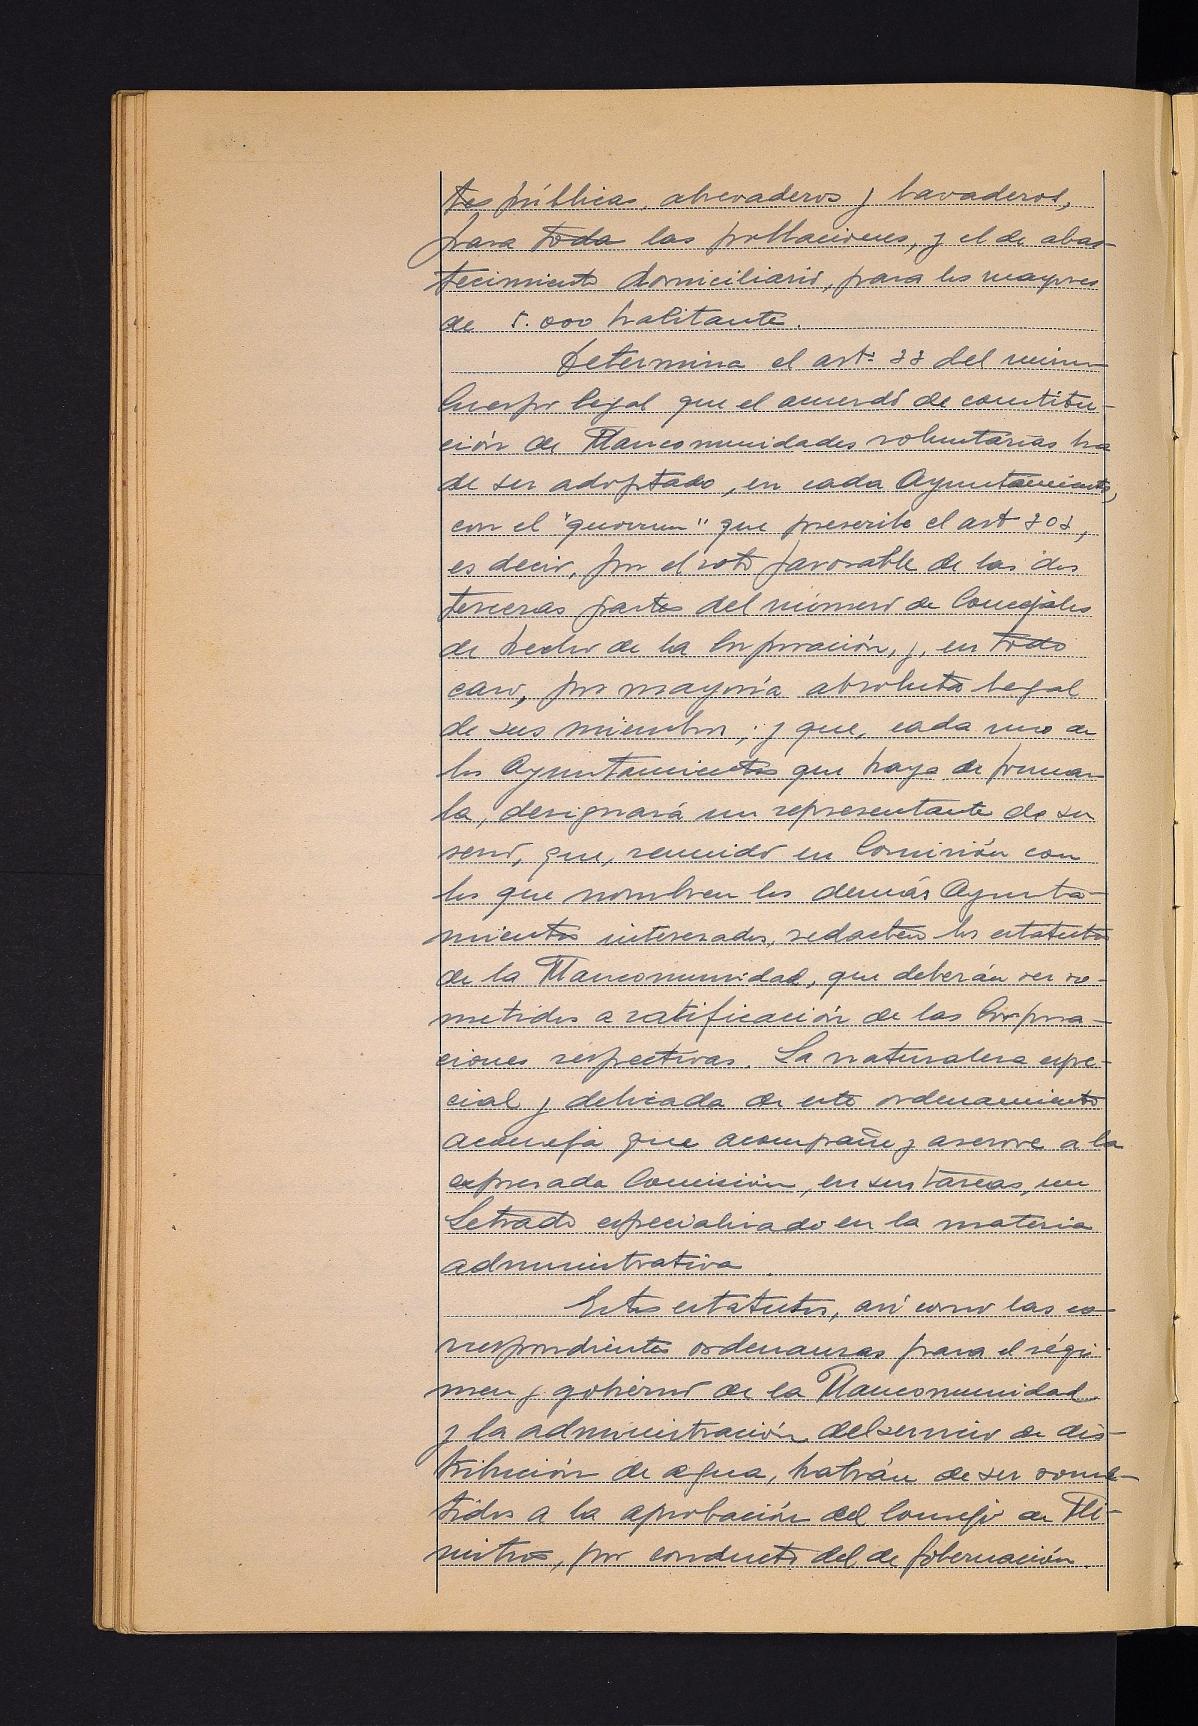 tes públicas, abrevaderos y lavaderos,
para toda las poblaciones, y el de abas-
tecimiento domiciliario, para los mayores
de 5.000 habitante.
Determina el artº 33 del mismo
Cuerpo legal que el acuerdo de constitu-
ción de Mancomunidades voluntarias ha
de ser adoptado, en cada Ayuntamiento,
con el "quorum" que prescribe el art 303,
es decir, por el voto favorable de las dos
terceras partes del número de Concejales
de hecho de la Corporación, y, en todo
caso, por mayoría absoluta legal
de sus miembros; y que, cada uno de
los Ayuntamientos que haya de formar-
la, designará un representante de su
seno, que, reunido en Comisión con
los que nombren los demás Ayunta-
mientos interesados, redacten los estatutos
de la Mancomunidad, que deberán ser so-
metidos a ratificación de las Corpora-
ciones respectivas. La naturaleza espe-
cial y delicada de este ordenamiento
aconseja que acompañe y asesore a la
expresada Comisión, en sus tareas, un
Letrado especializado en la materia
administrativa.
Estos estatutos, así como las co-
rrespondientes ordenanzas para el régi-
men y gobierno de la Mancomunidad
y la administración del servicio de dis-
tribución de agua, habrán de ser some-
tidos a la aprobación del Consejo de Mi-
nistros, por conducto del de Gobernación.